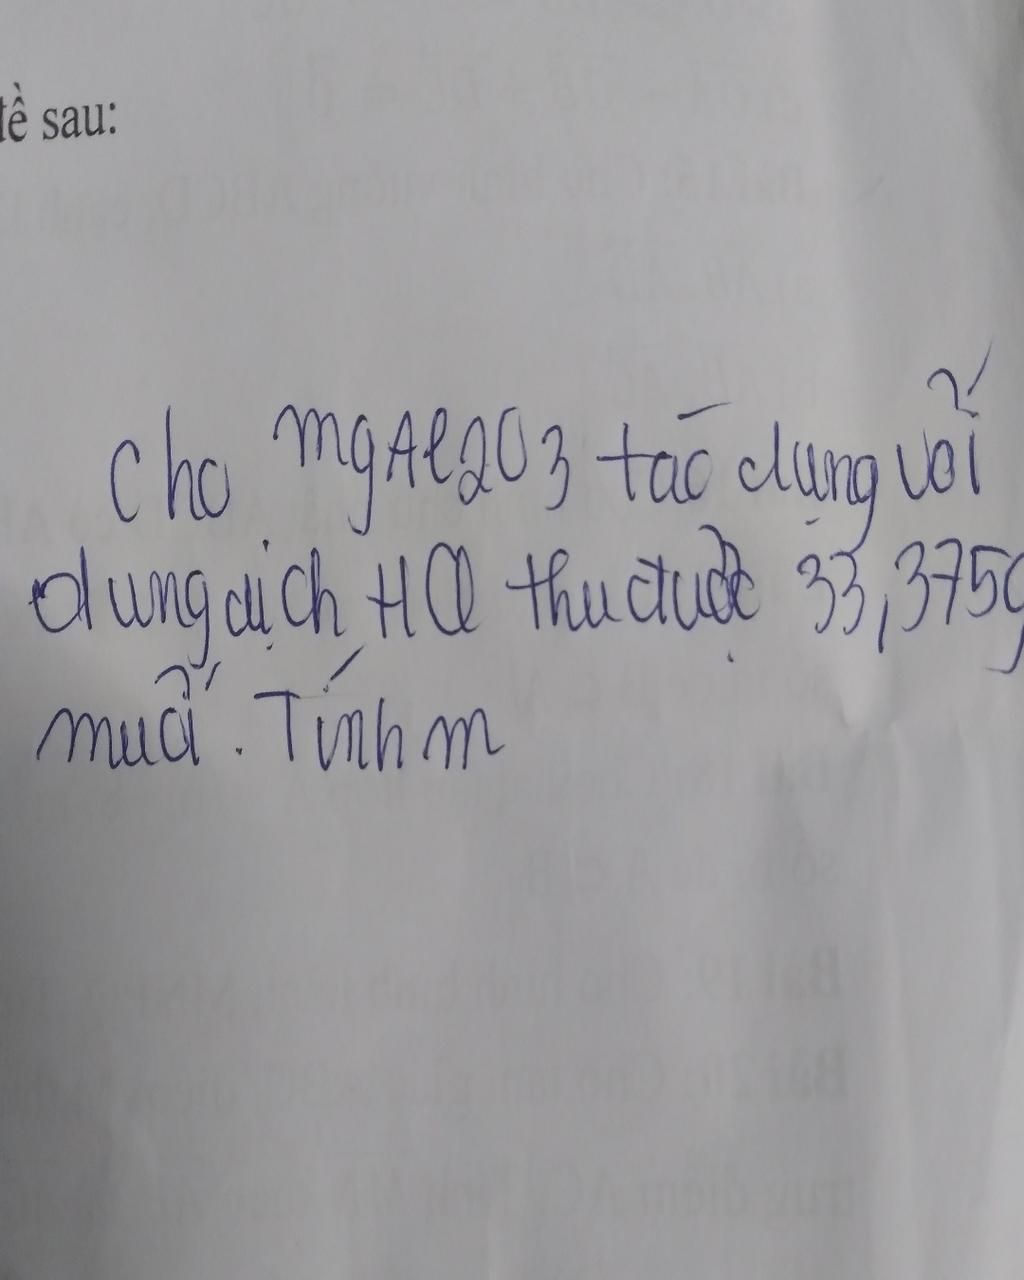 đề sau:
Cho mgAl2O3 tác dụng với
dung dịch HCl thu được 33,375g
muối. Tính m